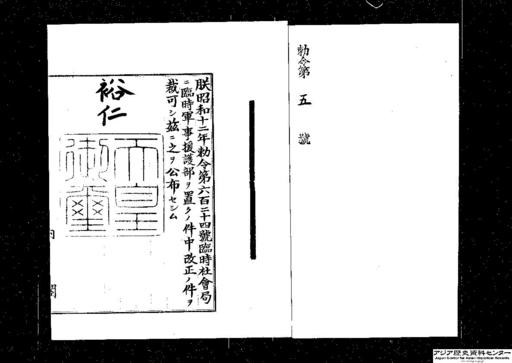 勅令第五號
朕昭和十二年勅令第六百二十四號臨時社會局
ニ臨時軍事援護部ヲ置クノ件中改正ノ件ヲ
裁可シ茲ニ之ヲ公布セシム
裕仁
天皇
御璽
内閣
アジア歴史資料センター
Japan Center for Asian Historical Records